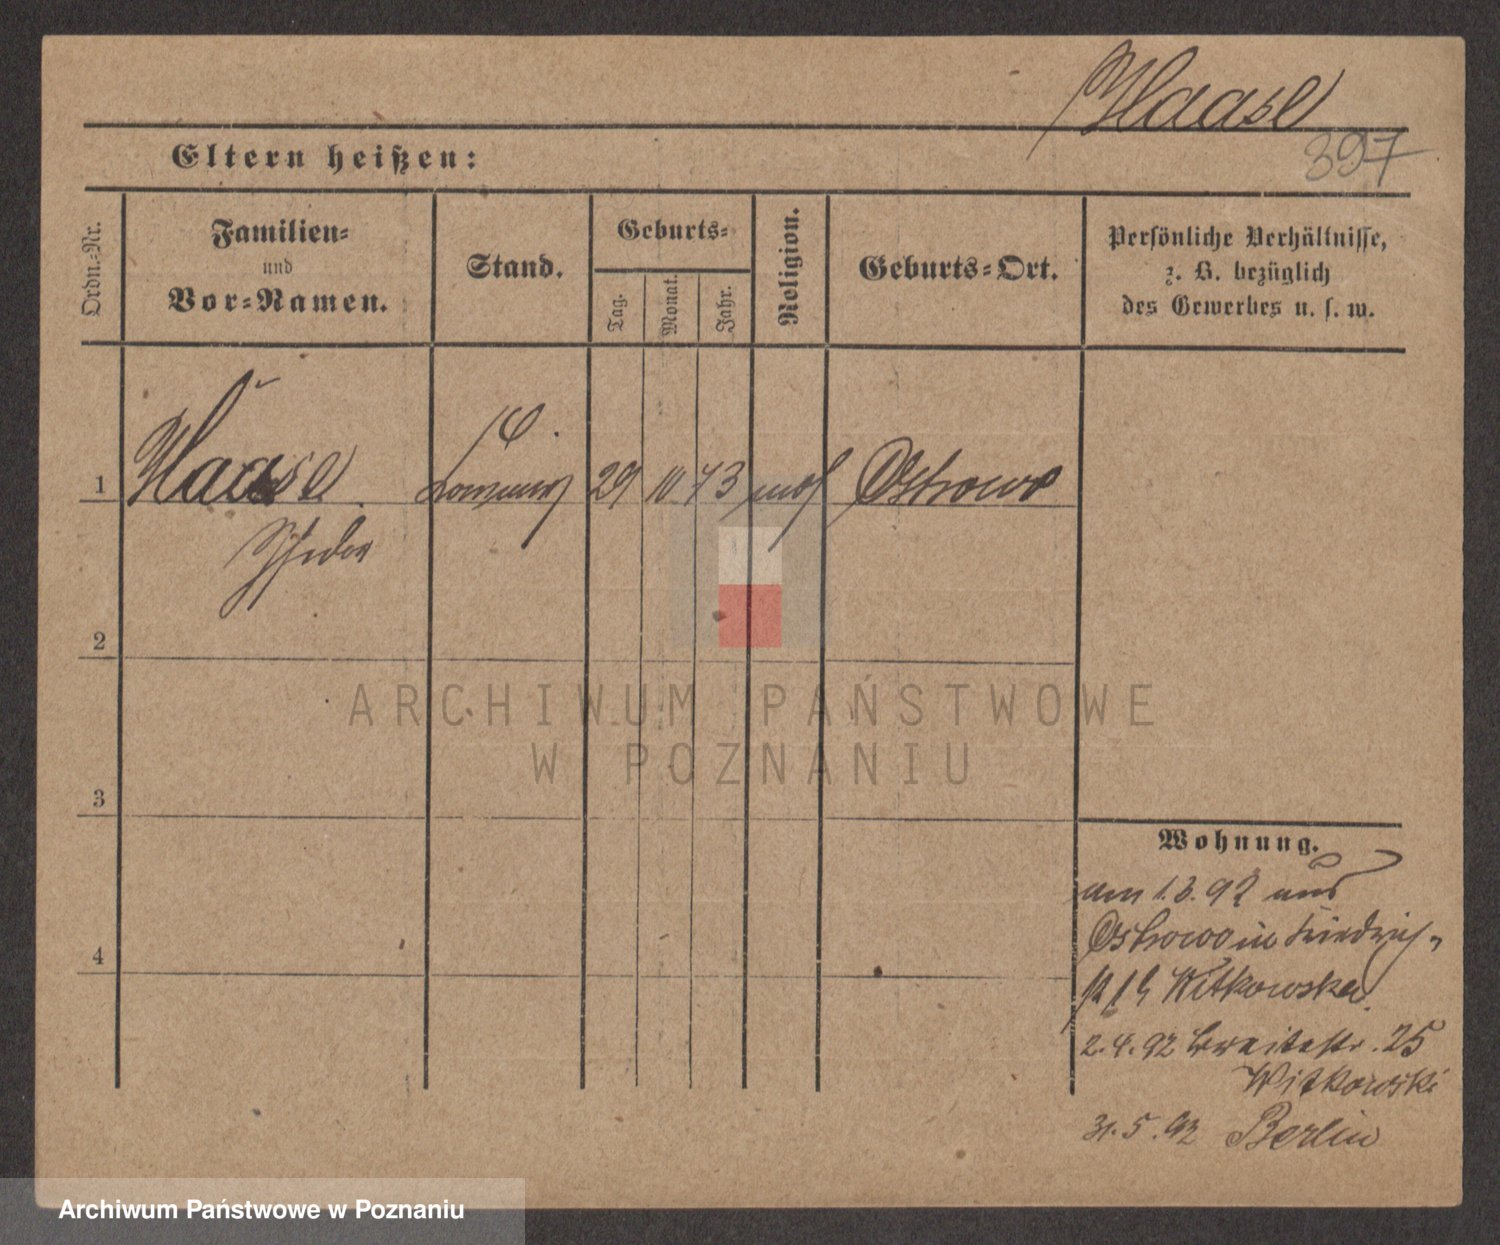 Haase
397
Eltern heißen:
Ordn.-Nr.
Familien-
und
Vor-Namen.
Stand.
Geburts-
Tag.
Monat.
Jahr.
Religion.
Geburts-Ort.
Persönliche Verhältnisse,
z. B. bezüglich
des Gewerbes u. s. w.
1
Haase
29 10 73 mos Ostrowo
2
3
4
Wohnung.
am 1.3.92 aus
Ostrowo in Friedrich-
Witkowska
2.4.92 Breitestr. 25
Witkowski
31.5.92 Berlin
ARCHIWUM PAŃSTWOWE
W POZNANIU
Archiwum Państwowe w Poznaniu